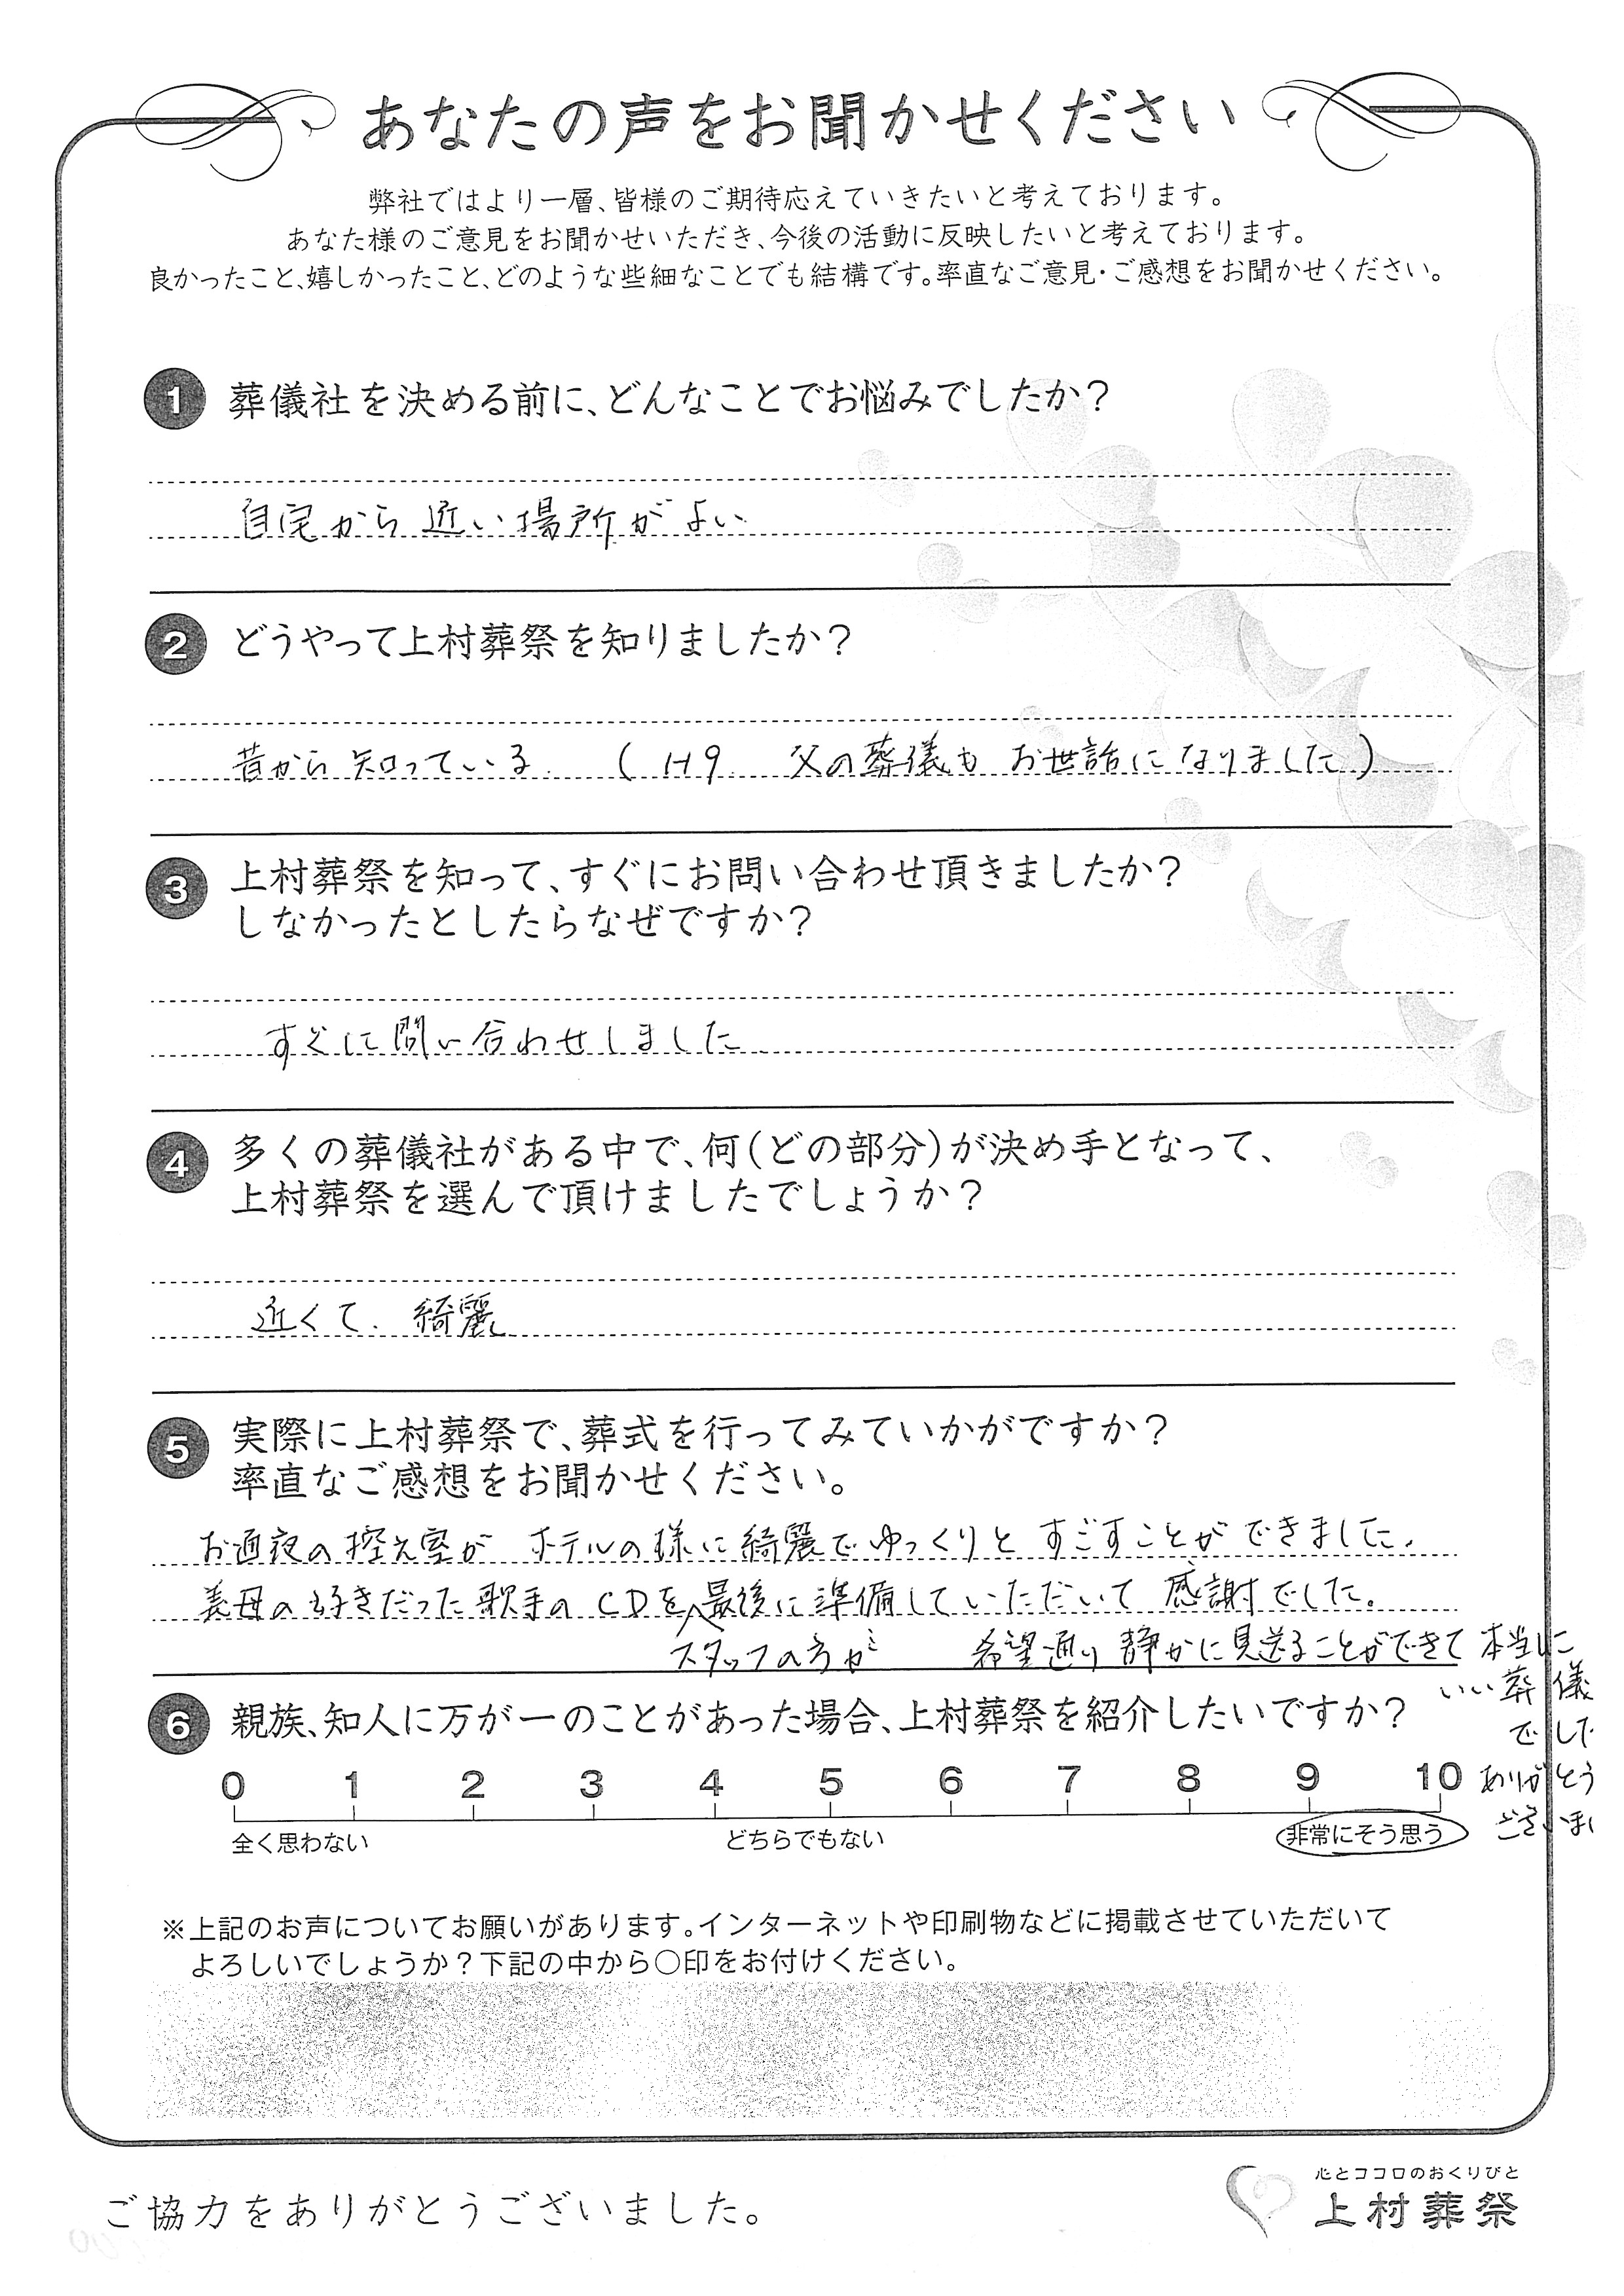 あなたの声をお聞かせください
弊社ではより一層、皆様のご期待応えていきたいと考えております。
あなた様のご意見をお聞かせいただき、今後の活動に反映したいと考えております。
良かったこと、嬉しかったこと、どのような些細なことでも結構です。率直なご意見・ご感想をお聞かせください。
1 葬儀社を決める前に、どんなことでお悩みでしたか?
自宅から近い場所がよい
2 どうやって上村葬祭を知りましたか?
昔から知っている (H9 父の葬儀もお世話になりました)
3 上村葬祭を知って、すぐにお問い合わせ頂きましたか?
しなかったとしたらなぜですか?
すぐに問い合わせしました
4 多くの葬儀社がある中で、何(どの部分)が決め手となって、
上村葬祭を選んで頂けましたでしょうか?
近くて、綺麗
5 実際に上村葬祭で、葬式を行ってみていかがですか?
率直なご感想をお聞かせください。
お通夜の控え室が ホテルの様に綺麗でゆっくりと すごすことができました。
義母の好きだった歌手のCDを最後に準備していただいて 感謝でした。
スタッフの方が 希望通り静かに見送ることができて 本当に
いい葬儀
でした
ありがとう
ございまし
6 親族、知人に万が一のことがあった場合、上村葬祭を紹介したいですか?
0 1 2 3 4 5 6 7 8 9 10
全く思わない どちらでもない 非常にそう思う
※上記のお声についてお願いがあります。インターネットや印刷物などに掲載させていただいて
よろしいでしょうか?下記の中から○印をお付けください。
ご協力をありがとうございました。
心とココロのおくりびと
上村葬祭